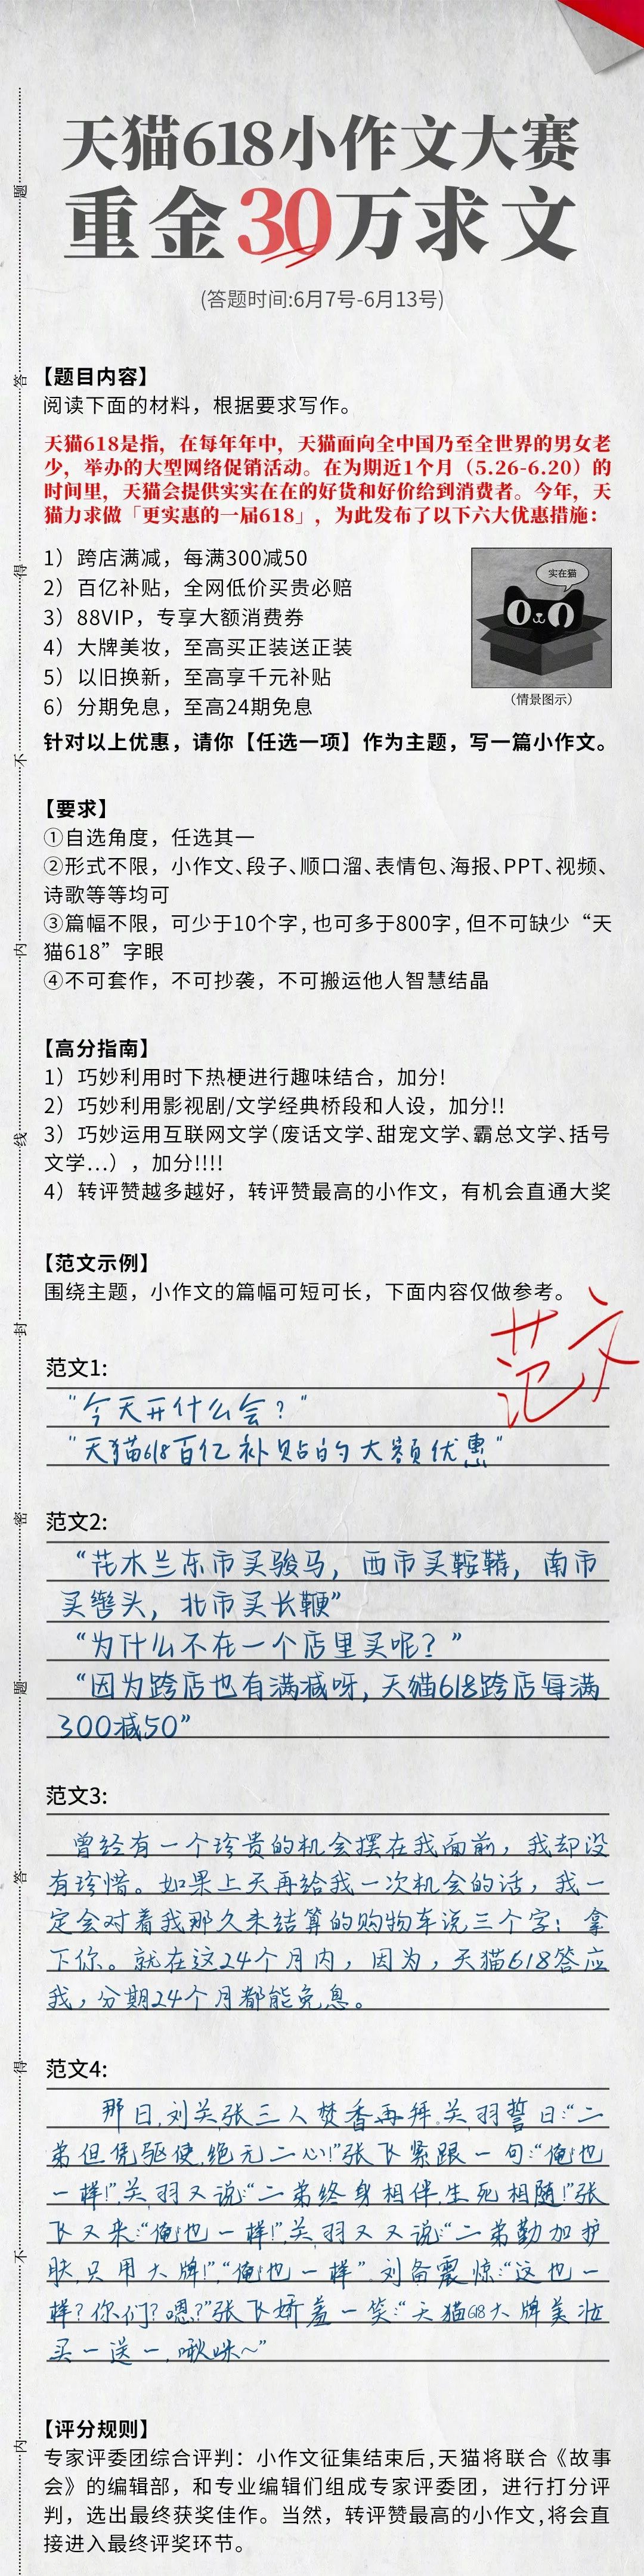 天猫618小作文大赛
重金30万求文
(答题时间:6月7号-6月13号)
【题目内容】
阅读下面的材料，根据要求写作。
天猫618是指，在每年年中，天猫面向全中国乃至全世界的男女老
少，举办的大型网络促销活动。在为期近1个月（5.26-6.20）的
时间里，天猫会提供实实在在的好货和好价给到消费者。今年，天
猫力求做「更实惠的一届618」，为此发布了以下六大优惠措施：
1）跨店满减，每满300减50
2）百亿补贴，全网低价买贵必赔
3）88VIP，专享大额消费券
4）大牌美妆，至高买正装送正装
5）以旧换新，至高享千元补贴
6）分期免息，至高24期免息
实在猫
（情景图示）
针对以上优惠，请你【任选一项】作为主题，写一篇小作文。
【要求】
①自选角度，任选其一
②形式不限，小作文、段子、顺口溜、表情包、海报、PPT、视频、
诗歌等等均可
③篇幅不限，可少于10个字,也可多于800字,但不可缺少“天
猫618”字眼
④不可套作，不可抄袭，不可搬运他人智慧结晶
【高分指南】
1）巧妙利用时下热梗进行趣味结合，加分!
2）巧妙利用影视剧/文学经典桥段和人设，加分!!
3）巧妙运用互联网文学（废话文学、甜宠文学、霸总文学、括号
文学...），加分!!!!
4）转评赞越多越好，转评赞最高的小作文，有机会直通大奖
【范文示例】
围绕主题，小作文的篇幅可短可长，下面内容仅做参考。
范文
范文1:
"今天开什么会？"
"天猫618百亿补贴的大额优惠"
范文2:
“花木兰东市买骏马，西市买鞍鞯，南市
买辔头，北市买长鞭”
“为什么不在一个店里买呢？”
“因为跨店也有满减呀，天猫618跨店每满
300减50”
范文3:
曾经有一个珍贵的机会摆在我面前，我却没
有珍惜。如果上天再给我一次机会的话，我一
定会对着我那久未结算的购物车说三个字：拿
下你。就在这24个月内，因为，天猫618答应
我，分期24个月都能免息。
范文4:
那日,刘关张三人焚香再拜。关羽誓曰:“二
弟但凭驱使,绝无二心!”张飞紧跟一句:“俺也
一样!”,关羽又说:“二弟终身相伴,生死相随!”张
飞又来:“俺也一样!”,关羽又又说:“二弟勤加护
肤,只用大牌!”“俺也一样”.刘备震惊:“这也一
样?你们?嗯?”张飞娇羞一笑:“天猫618大牌美妆
买一送一,啾咪~”
【评分规则】
专家评委团综合评判：小作文征集结束后,天猫将联合《故事
会》的编辑部，和专业编辑们组成专家评委团，进行打分评
判，选出最终获奖佳作。当然，转评赞最高的小作文,将会直
接进入最终评奖环节。
题
答
得
不
内
线
封
密
题
答
得
不
内